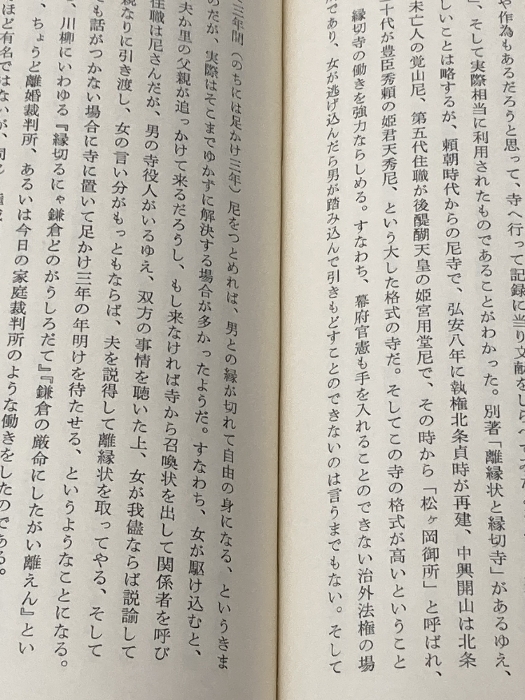 や作為もあるだろうと思って、寺へ行って記録に当り文献をしらべ
」、そして実際相当に利用されたものであることがわかった。別著「離縁状と縁切寺」があるゆえ、
しいことは略するが、頼朝時代からの尼寺で、弘安八年に執権北条貞時が再建、中興開山は北条
未亡人の覚山尼、第五代住職が後醍醐天皇の姫宮用堂尼で、その時から「松ヶ岡御所」と呼ばれ、
十代が豊臣秀頼の姫君天秀尼、という大した格式の寺だ。そしてこの寺の格式が高いということ
縁切寺の働きを強力ならしめる。すなわち、幕府官憲も手を入れることのできない治外法権の場
であり、女が逃げ込んだら男が踏み込んで引きもどすことのできないのは言うまでもない。そして
三年間（のちには足かけ三年）尼をつとめれば、男との縁が切れて自由の身になる、というきま
のだが、実際はそこまでゆかずに解決する場合が多かったようだ。すなわち、女が駆け込むと、
夫か里の父親が追っかけて来るだろうし、もし来なければ寺から召喚状を出して関係者を呼び
住職は尼さんだが、男の寺役人がいるゆえ、双方の事情を聴いた上、女が我儘ならば説諭して
親なりに引き渡し、女の言い分がもっともならば、夫を説得して離縁状を取ってやる、そして
も話がつかない場合に寺に置いて足かけ三年の年明けを待たせる、というようなことになる。
、川柳にいわゆる『縁切るにゃ鎌倉どのがうしろだて』『鎌倉の厳命にしたがい離えん』とい
、ちょうど離婚裁判所、あるいは今日の家庭裁判所のような働きをしたのである。
ほど有名ではないが、同